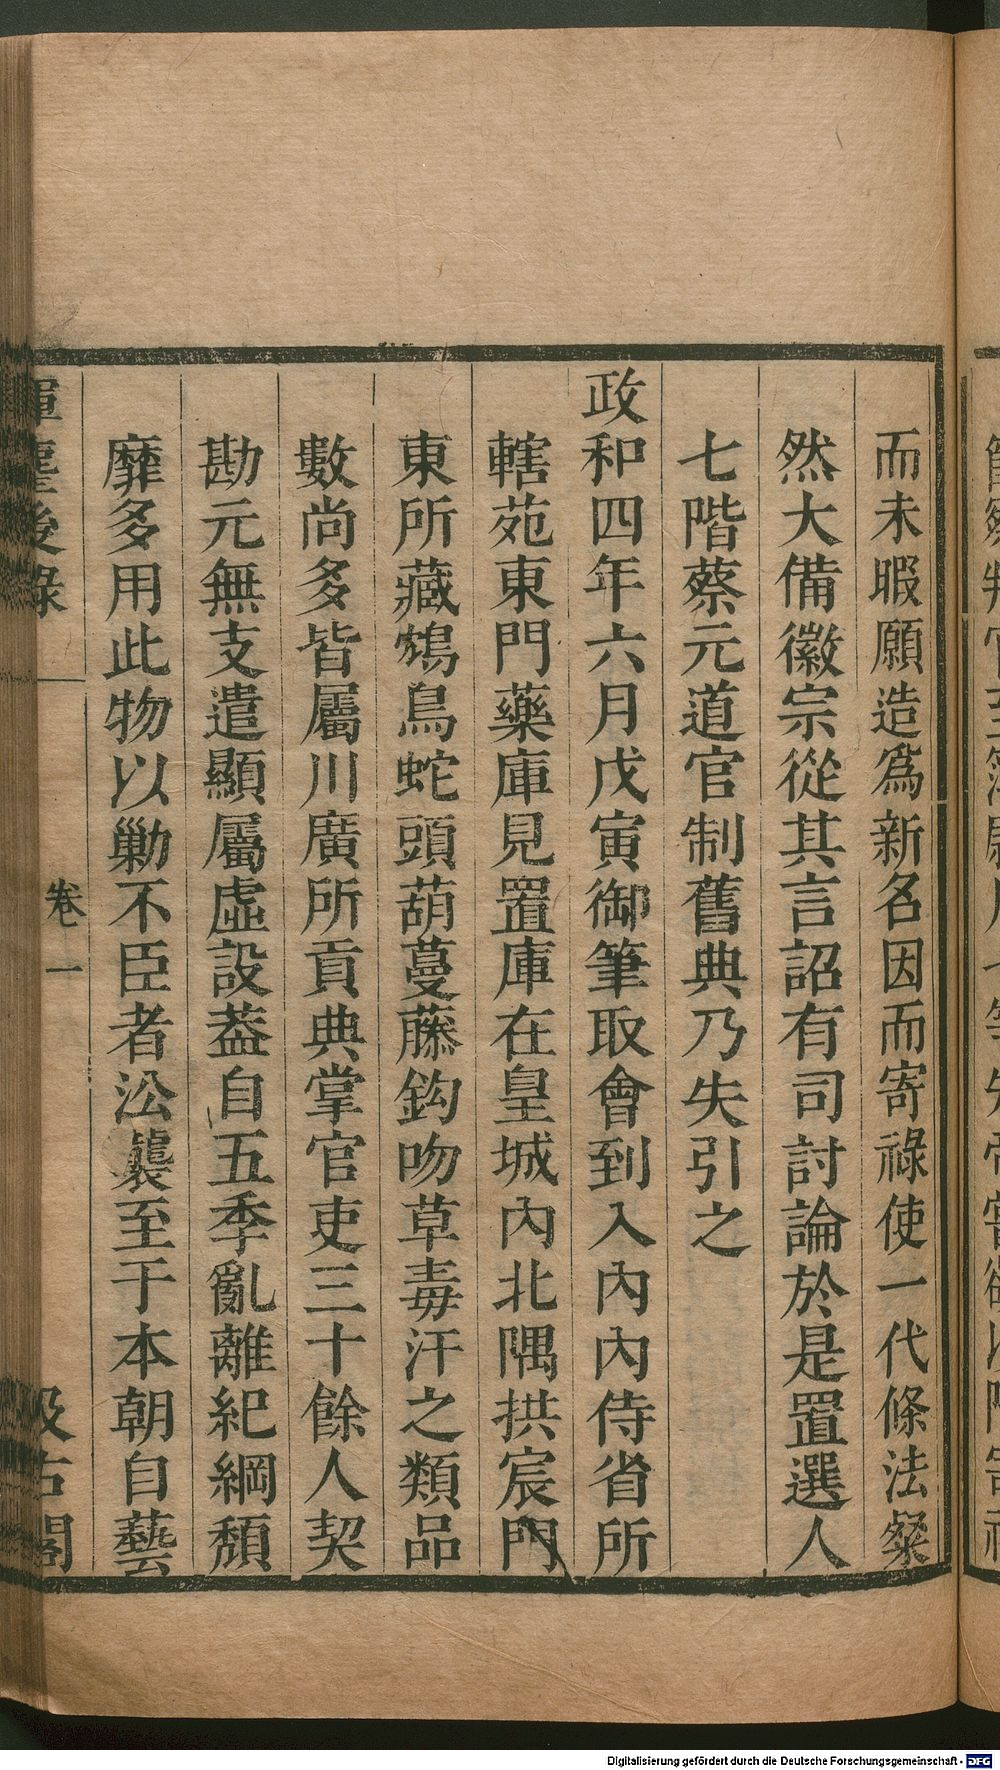 而未暇願造爲新名因而寄祿使一代條法粲
然大備徽宗從其言詔有司討論於是置選人
七階蔡元道官制舊典乃失引之
政和四年六月戊寅御筆取會到入內內侍省所
轄苑東門藥庫見置庫在皇城內北隅拱宸門
東所藏鴆鳥蛇頭葫蔓藤鈎吻草毒汗之類品
數尚多皆屬川廣所貢典掌官吏三十餘人契
勘元無支遣顯屬虛設葢自五季亂離紀綱頹
靡多用此物以勦不臣者㳂襲至于本朝自藝
揮麈後錄 卷一 汲古閣
Digitalisierung gefördert durch die Deutsche Forschungsgemeinschaft - DFG